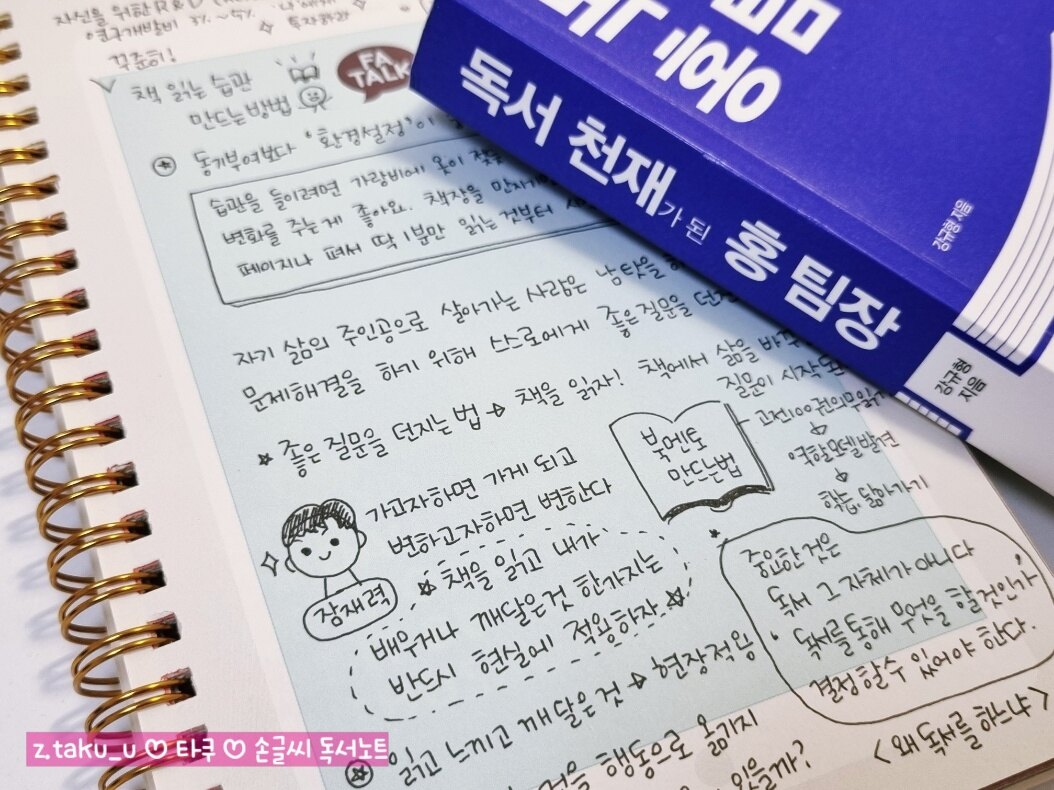 자신을 위한 R&D
연구개발비 3%~5%
꾸준히!
책 읽는 습관
만드는 방법
FA
TALK
동기부여보다 '환경설정'이
습관을 들이려면 가랑비에 옷이 젖듯
변화를 주는게 좋아요. 책장을 만지게
페이지나 펴서 딱 1분만 읽는것부터
자기 삶의 주인공으로 살아가는 사람은 남탓을
문제해결을 하기 위해 스스로에게 좋은질문을 던진
★ 좋은 질문을 던지는 법 → 책을 읽자! 책에서 삶을 바꾸
질문이 시작
북멘토
만드는법
고전100권의무읽기
↓
역할모델 발견
↓
학습, 닮아가기
가고자하면 가게 되고
변하고자하면 변한다
잠재력
★ 책을 읽고 내가
배우거나 깨달은것 한가지는
반드시 현실에 적용하자★
중요한 것은
독서 그 자체가 아니다
독서를 통해 무엇을 할것인가
결정할수 있어야 한다.
읽고 느끼고 깨달은것 → 현장적용
것을 행동으로 옮기지
있을까?
<왜 독서를 하느냐>
독서 천재가 된 홍 팀장
강규형 지음
강규형
지음
z.taku_u ♡ 타쿠 ♡ 손글씨 독서노트